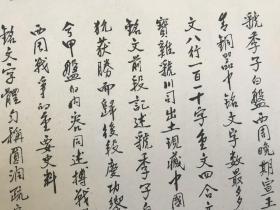 號季子白盤西周晚期宣王
青銅器中銘文字數最多
文八行一百一十字重文四合文
寶雞號川司出土現藏中國
銘文前段記述號季子白
狁获勝而歸後段慶功饗
今甲盤的内容同述搏戰
西周戰争的重要史料
銘文字體匀稱圓潤疏